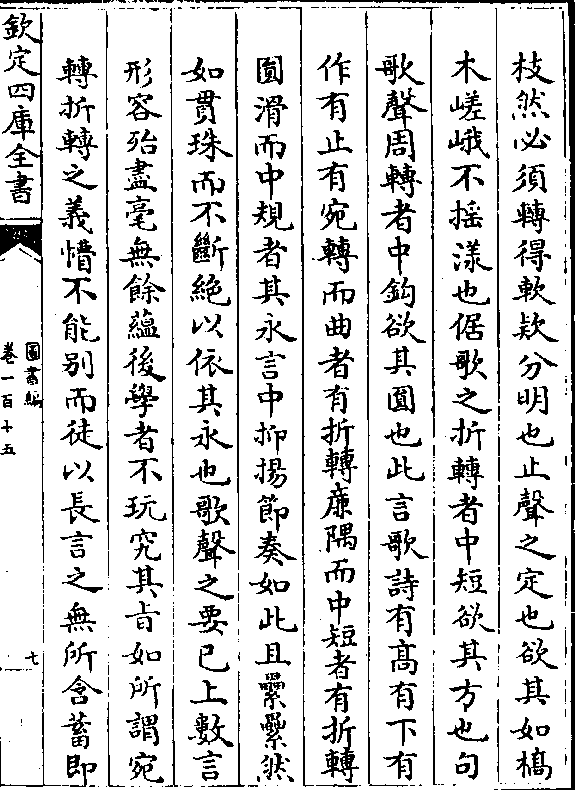 枝然必須轉得軟款分明也止聲之定也欲其如槁
木嵯峨不搖漾也倨歌之折轉者中短欲其方也句
歌聲周轉者中鈎欲其圓也此言歌詩有高有下有
作有止有宛轉而曲者有折轉廉隅而中短者有折轉
圓滑而中規者其永言中抑揚節奏如此且纍纍然
如貫珠而不斷絕以依其永也歌聲之要已上數言
形容殆盡毫無餘蘊後學者不玩究其旨如所謂宛
轉折轉之義懵不能别而徒以長言之無所含蓄即
欽定四庫全書
圖書編
卷一百十五
七